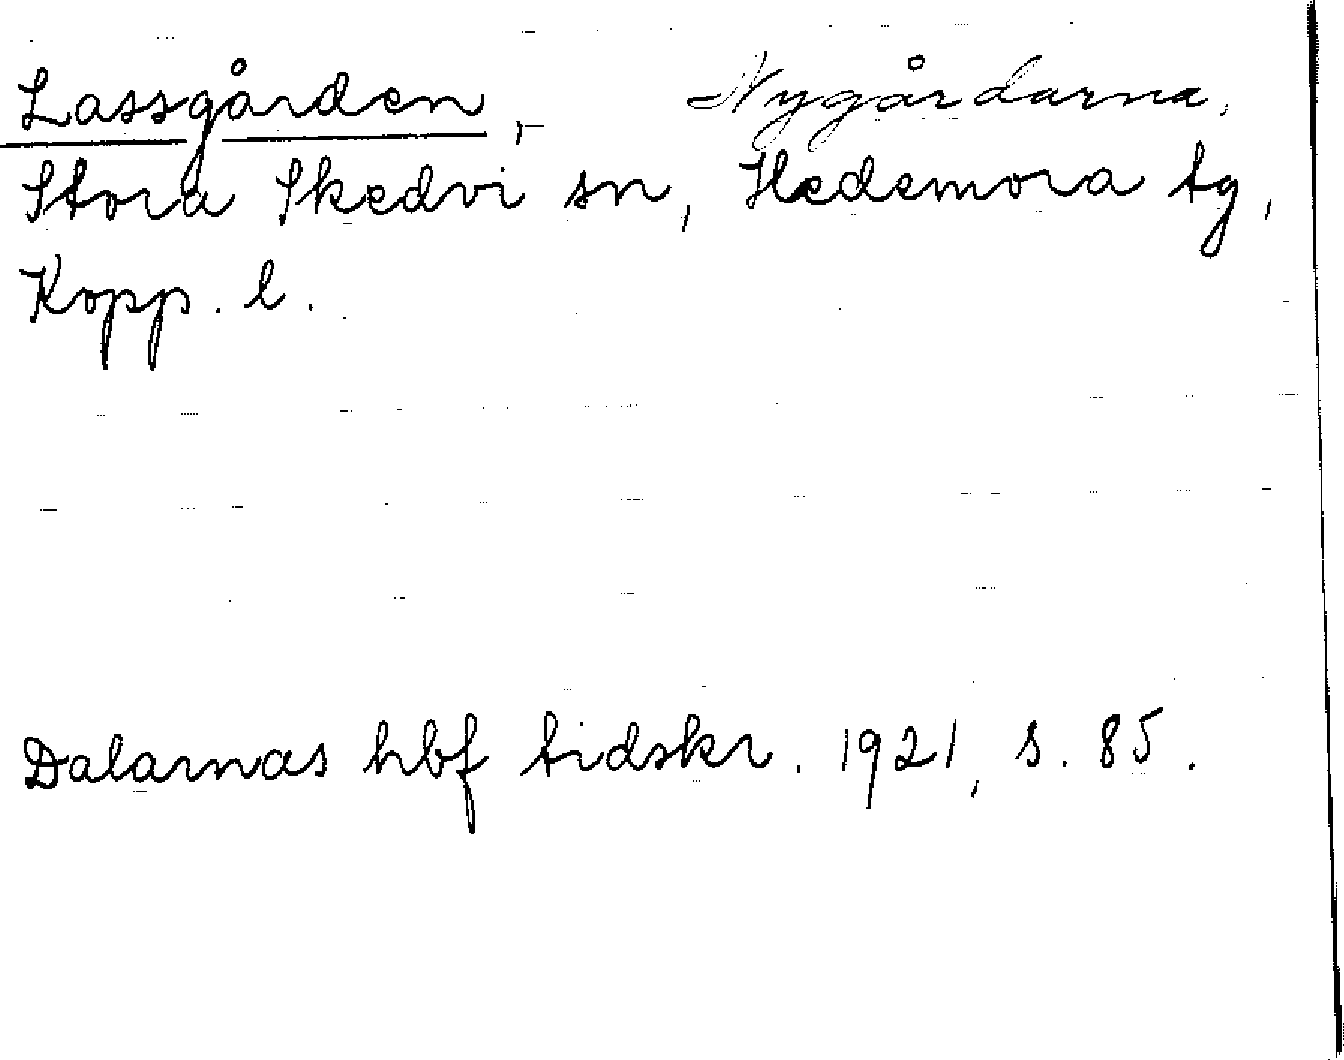 Lassgården, Nygårdarna,
Stora Skedvi sn, Hedemora tg,
Kopp. l.
Dalarnas hbf tidskr. 1921, s. 85.